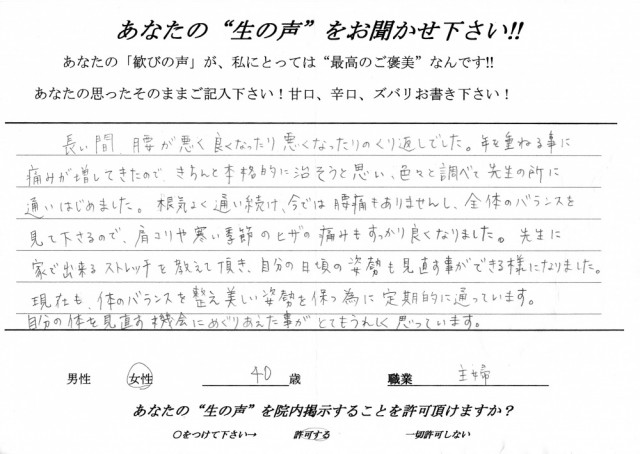 あなたの“生の声”をお聞かせ下さい!!
あなたの「歓びの声」が、私にとっては“最高のご褒美”なんです!!
あなたの思ったそのままご記入下さい！甘口、辛口、ズバリお書き下さい！
長い間、腰が悪く良くなったり悪くなったりのくり返しでした。年を重ねる事に
痛みが増してきたので、きちんと本格的に治そうと思い、色々と調べて先生の所に
通いはじめました。根気よく通い続け、今では腰痛もありませんし、全体のバランスを
見て下さるので、肩コリや寒い季節のヒザの痛みもすっかり良くなりました。先生に
家で出来るストレッチを教えて頂き、自分の日頃の姿勢も見直す事ができる様になりました。
現在も、体のバランスを整え美しい姿勢を保つ為に定期的に通っています。
自分の体を見直す機会にめぐりあえた事がとてもうれしく思っています。
男性 女性 40 歳 職業 主婦
あなたの“生の声”を院内掲示することを許可頂けますか？
〇をつけて下さい→ 許可する 一切許可しない